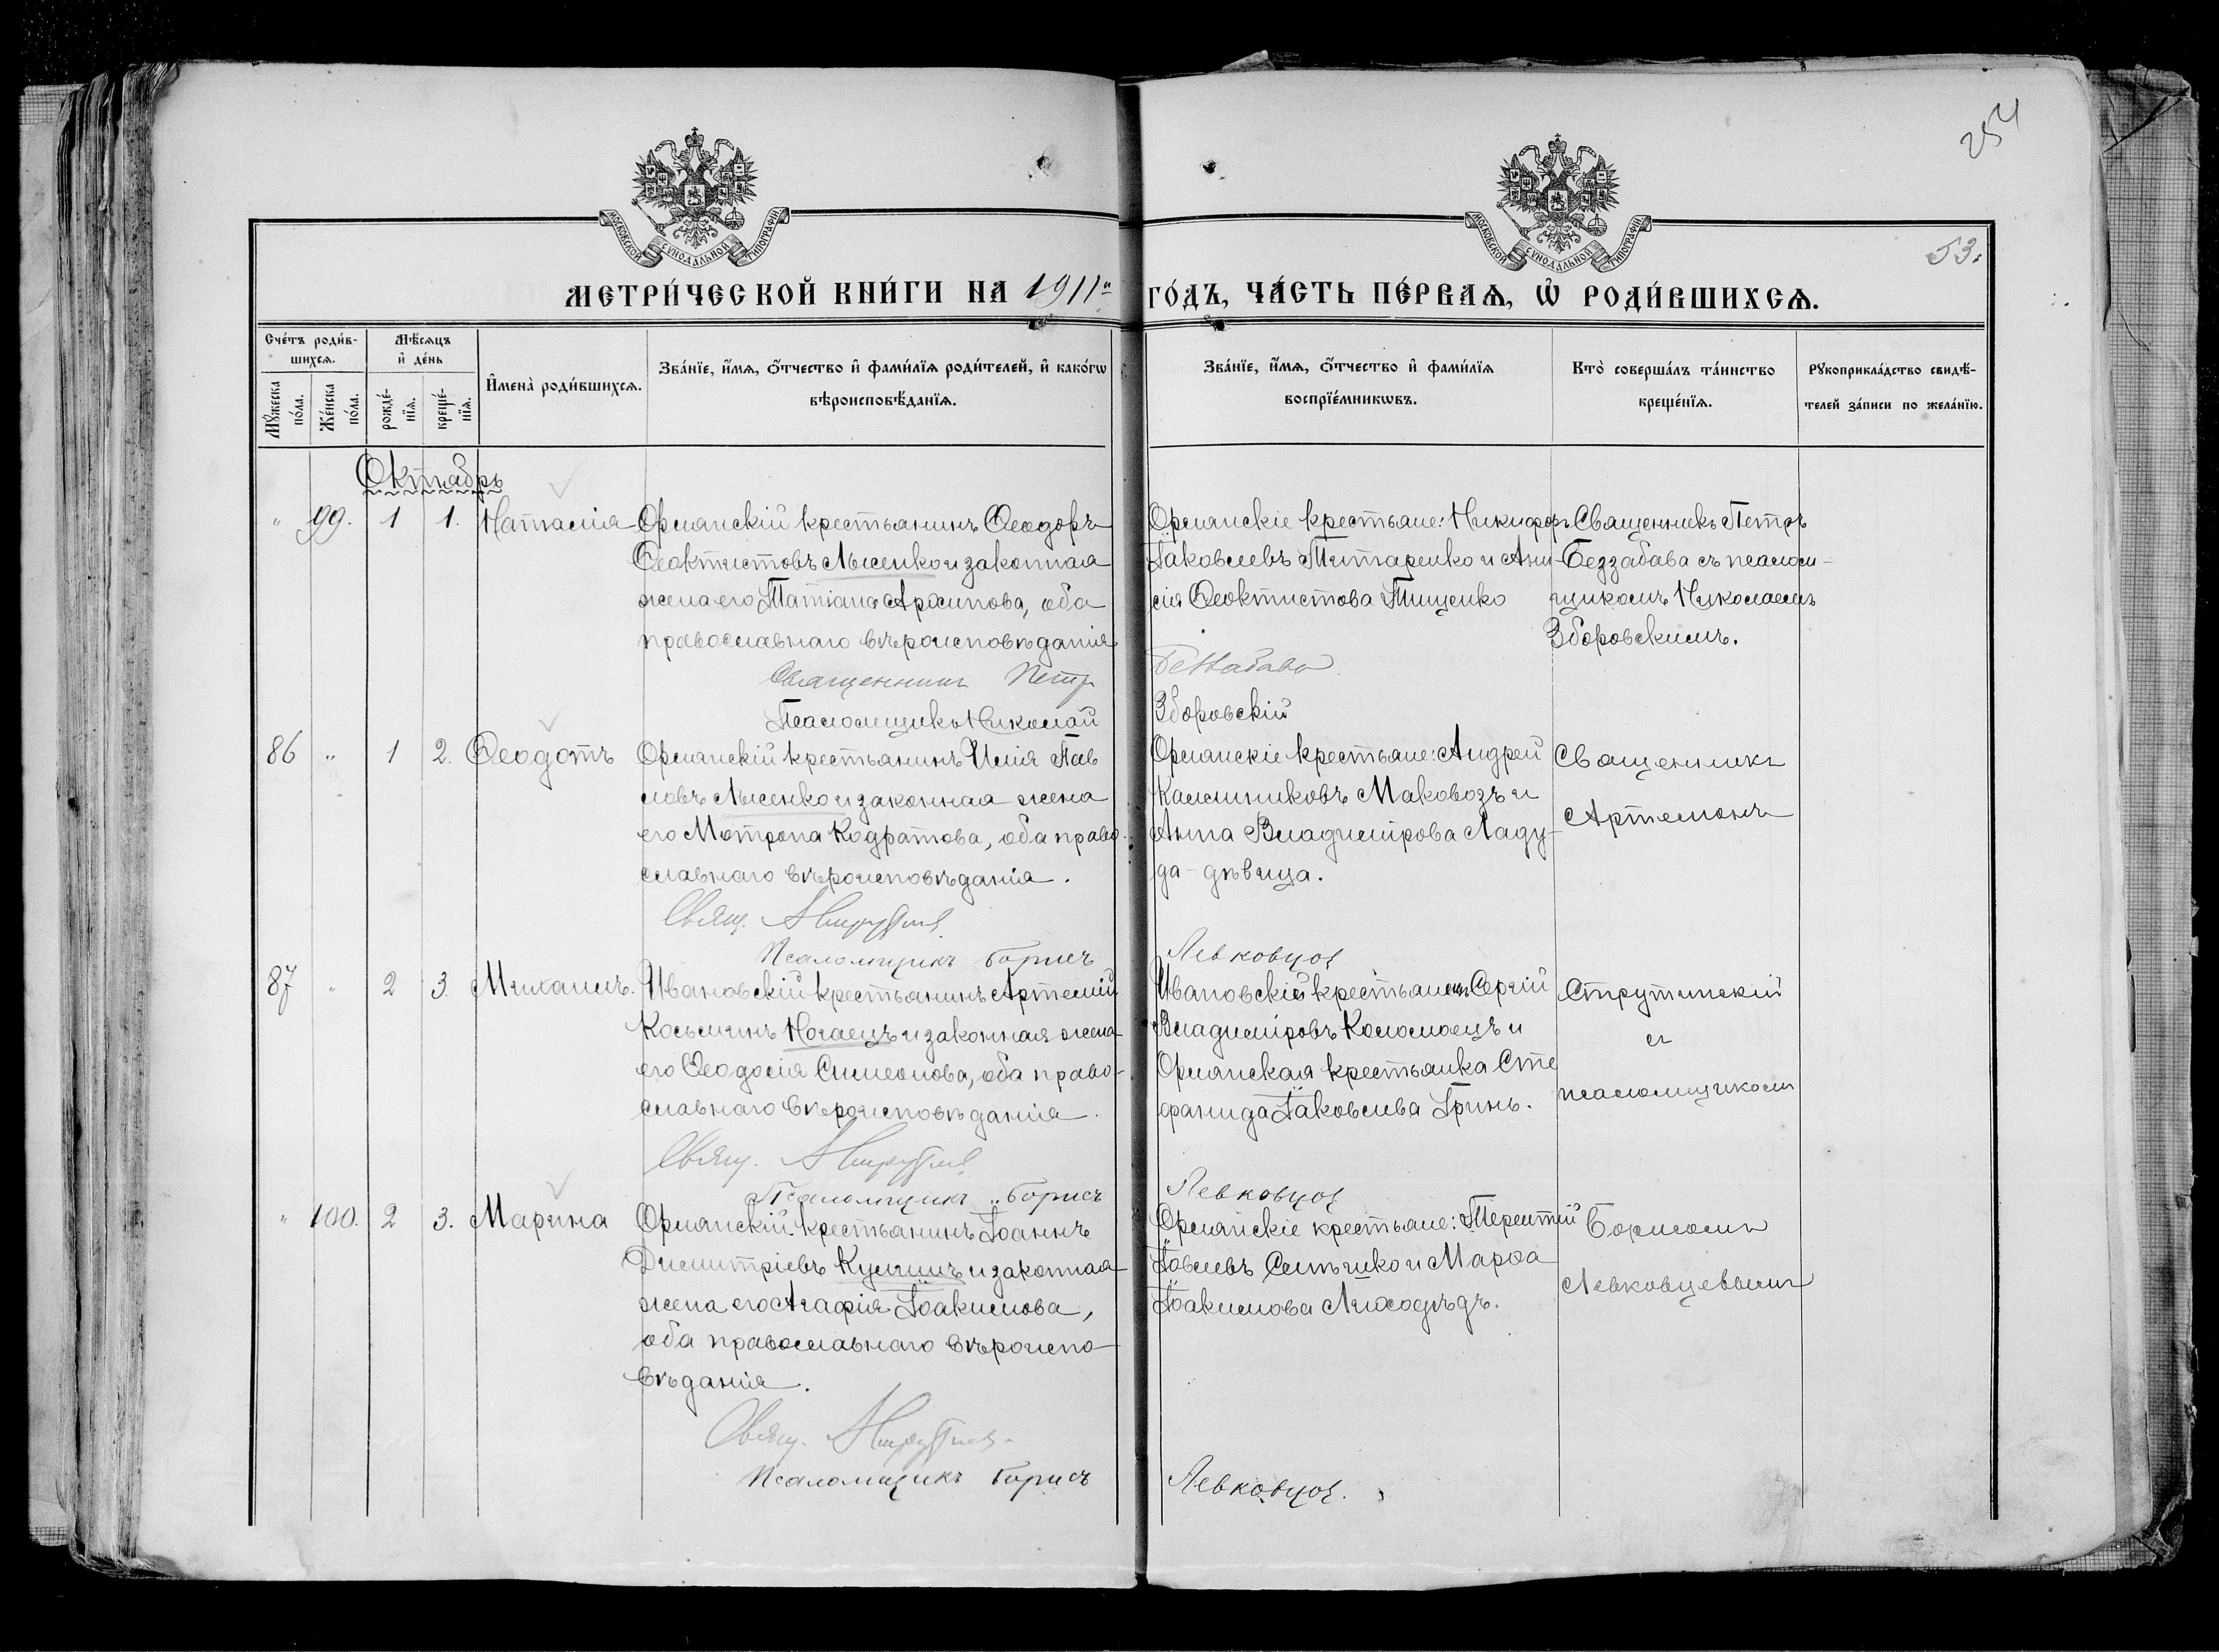 254
53.
МОСКОВСКОЙ СУНОДАЛЬНОЙ ТИПОГРАФІИ
МОСКОВСКОЙ СУНОДАЛЬНОЙ ТИПОГРАФІИ
МЕТРИ́ЧЕСКОЙ КНИ́ГИ НА 1911й ГО́ДЪ, ЧА́СТЬ ПЕ́РВАѦ, Ѽ РОДИ́ВШИХСѦ.
Сче́тъ роди́в-
шихсѧ.
Мꙋ́жеска по́ла.
Же́нска по́ла.
Мѣ́сѧцъ
и҆ де́нь
рожде́-
нїѧ.
креще́-
нїѧ.
И҆мена̀ роди́вшихсѧ.
Зва́нїе, и҆́мѧ, ѻ҆́тчество и҆ фами́лїѧ роди́телей, и҆ како́гѡ
вѣроисповѣ́данїѧ.
Зва́нїе, и҆́мѧ, ѻ҆́тчество и҆ фами́лїѧ
воспрїе́мникѡвъ.
Кто̀ соверша́лъ та́инство
креще́нїѧ.
Рꙋкоприкла́дство свидѣ́-
телей за́писи по жела́нїю.
Октябрь
" 99. 1 1. Наталія
Орлянскій крестьянинъ Ѳеодоръ
Ѳеоктистовъ Лысенко и законная
жена его Татіана Архипова, оба
православнаго вѣроисповѣданія
Священникъ Петр
Псаломщикъ Николай
Орлянскіе крестьяне: Никифоръ
Іаковлевъ Титаренко и Ани-
сія Ѳеоктистова Тищенко
Беззабава
Зборовскій
Священникъ Петръ
Беззабава съ псалом-
щикомъ Николаемъ
Зборовскимъ.
86 " 1 2. Ѳеодотъ
Орлянскій крестьянинъ Илія Пав
ловъ Лысенко и законная жена
его Матрона Кодратова, оба право-
славнаго вѣроисповѣданія.
Свящ. А Струтинскій
Псаломщикъ Борисъ
Орлянскіе крестьяне: Андрей
Каллиниковъ Маковозъ и
Анна Владимірова Ладу-
да - дѣвица.
Левковцов
Священникъ
Артемонъ
87 " 2 3. Михаилъ.
Ивановскій крестьянинъ Артемій
Косьминъ Ногаецъ и законная жена
его Ѳеодосія Симеонова, оба право-
славнаго вѣроисповѣданія.
Свящ. А Струтинскій
Псаломщикъ Борисъ
Ивановскій крестьянинъ Сергій
Владиміровъ Коломоецъ и
Орлянская крестьянка Сте
фанида Іаковлева Гринь.
Левковцов
Струтинскій
съ
псаломщикомъ
" 100. 2 3. Марина
Орлянскій крестьянинъ Іоаннъ
Димитріевъ Кулишъ и законная
жена его Агафія Іоакимова,
оба православнаго вѣроиспо-
вѣданія.
Свящ. А Струтинскій
Псаломщикъ Борисъ
Орлянскіе крестьяне: Терентій
Іовлевъ Сытько и Марѳа
Іоакимова Лиходѣдъ.
Левковцов.
Борисомъ
Левковцевымъ